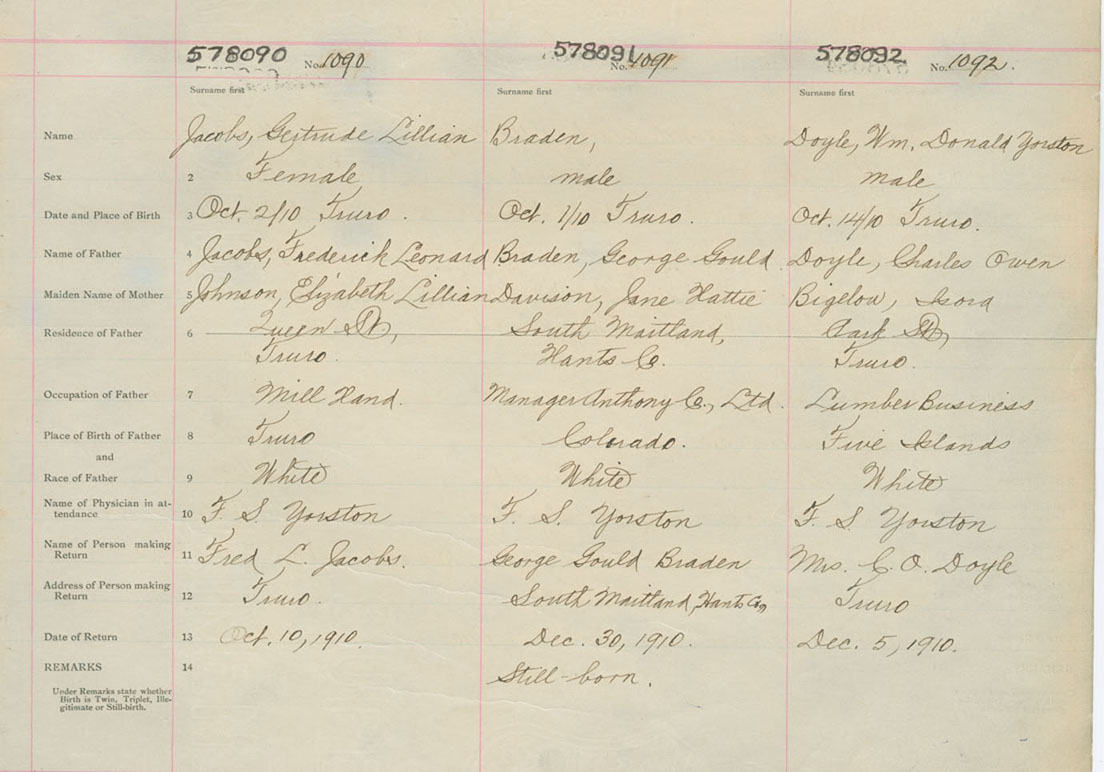 578090 No. 1090 578091 No. 1091 578092 No. 1092.
Surname first Surname first Surname first
Name Jacobs, Gertrude Lillian Braden, Doyle, Wm. Donald Yorston
Sex 2 Female male male
Date and Place of Birth 3 Oct. 2/10 Truro. Oct. 1/10 Truro. Oct. 14/10 Truro.
Name of Father 4 Jacobs, Frederick Leonard Braden, George Gould Doyle, Charles Owen
Maiden Name of Mother 5 Johnson, Elizabeth Lillian Davison, Jane Hattie Bigelow, Isora
Residence of Father 6 Queen St, South Maitland, Park St,
Truro. Hants Co. Truro.
Occupation of Father 7 Mill Hand. Manager Anthony Co., Ltd. Lumber Business
Place of Birth of Father 8 Truro Colorado. Five Islands
and
Race of Father 9 White White White
Name of Physician in at-
tendance 10 F. S. Yorston F. S. Yorston F. S. Yorston
Name of Person making
Return 11 Fred L. Jacobs. George Gould Braden Mrs. C. O. Doyle
Address of Person making
Return 12 Truro. South Maitland, Hants Co, Truro
Date of Return 13 Oct. 10, 1910. Dec. 30, 1910. Dec. 5, 1910.
REMARKS 14 Still-born.
Under Remarks state whether
Birth is Twin, Triplet, Ille-
gitimate or Still-birth.